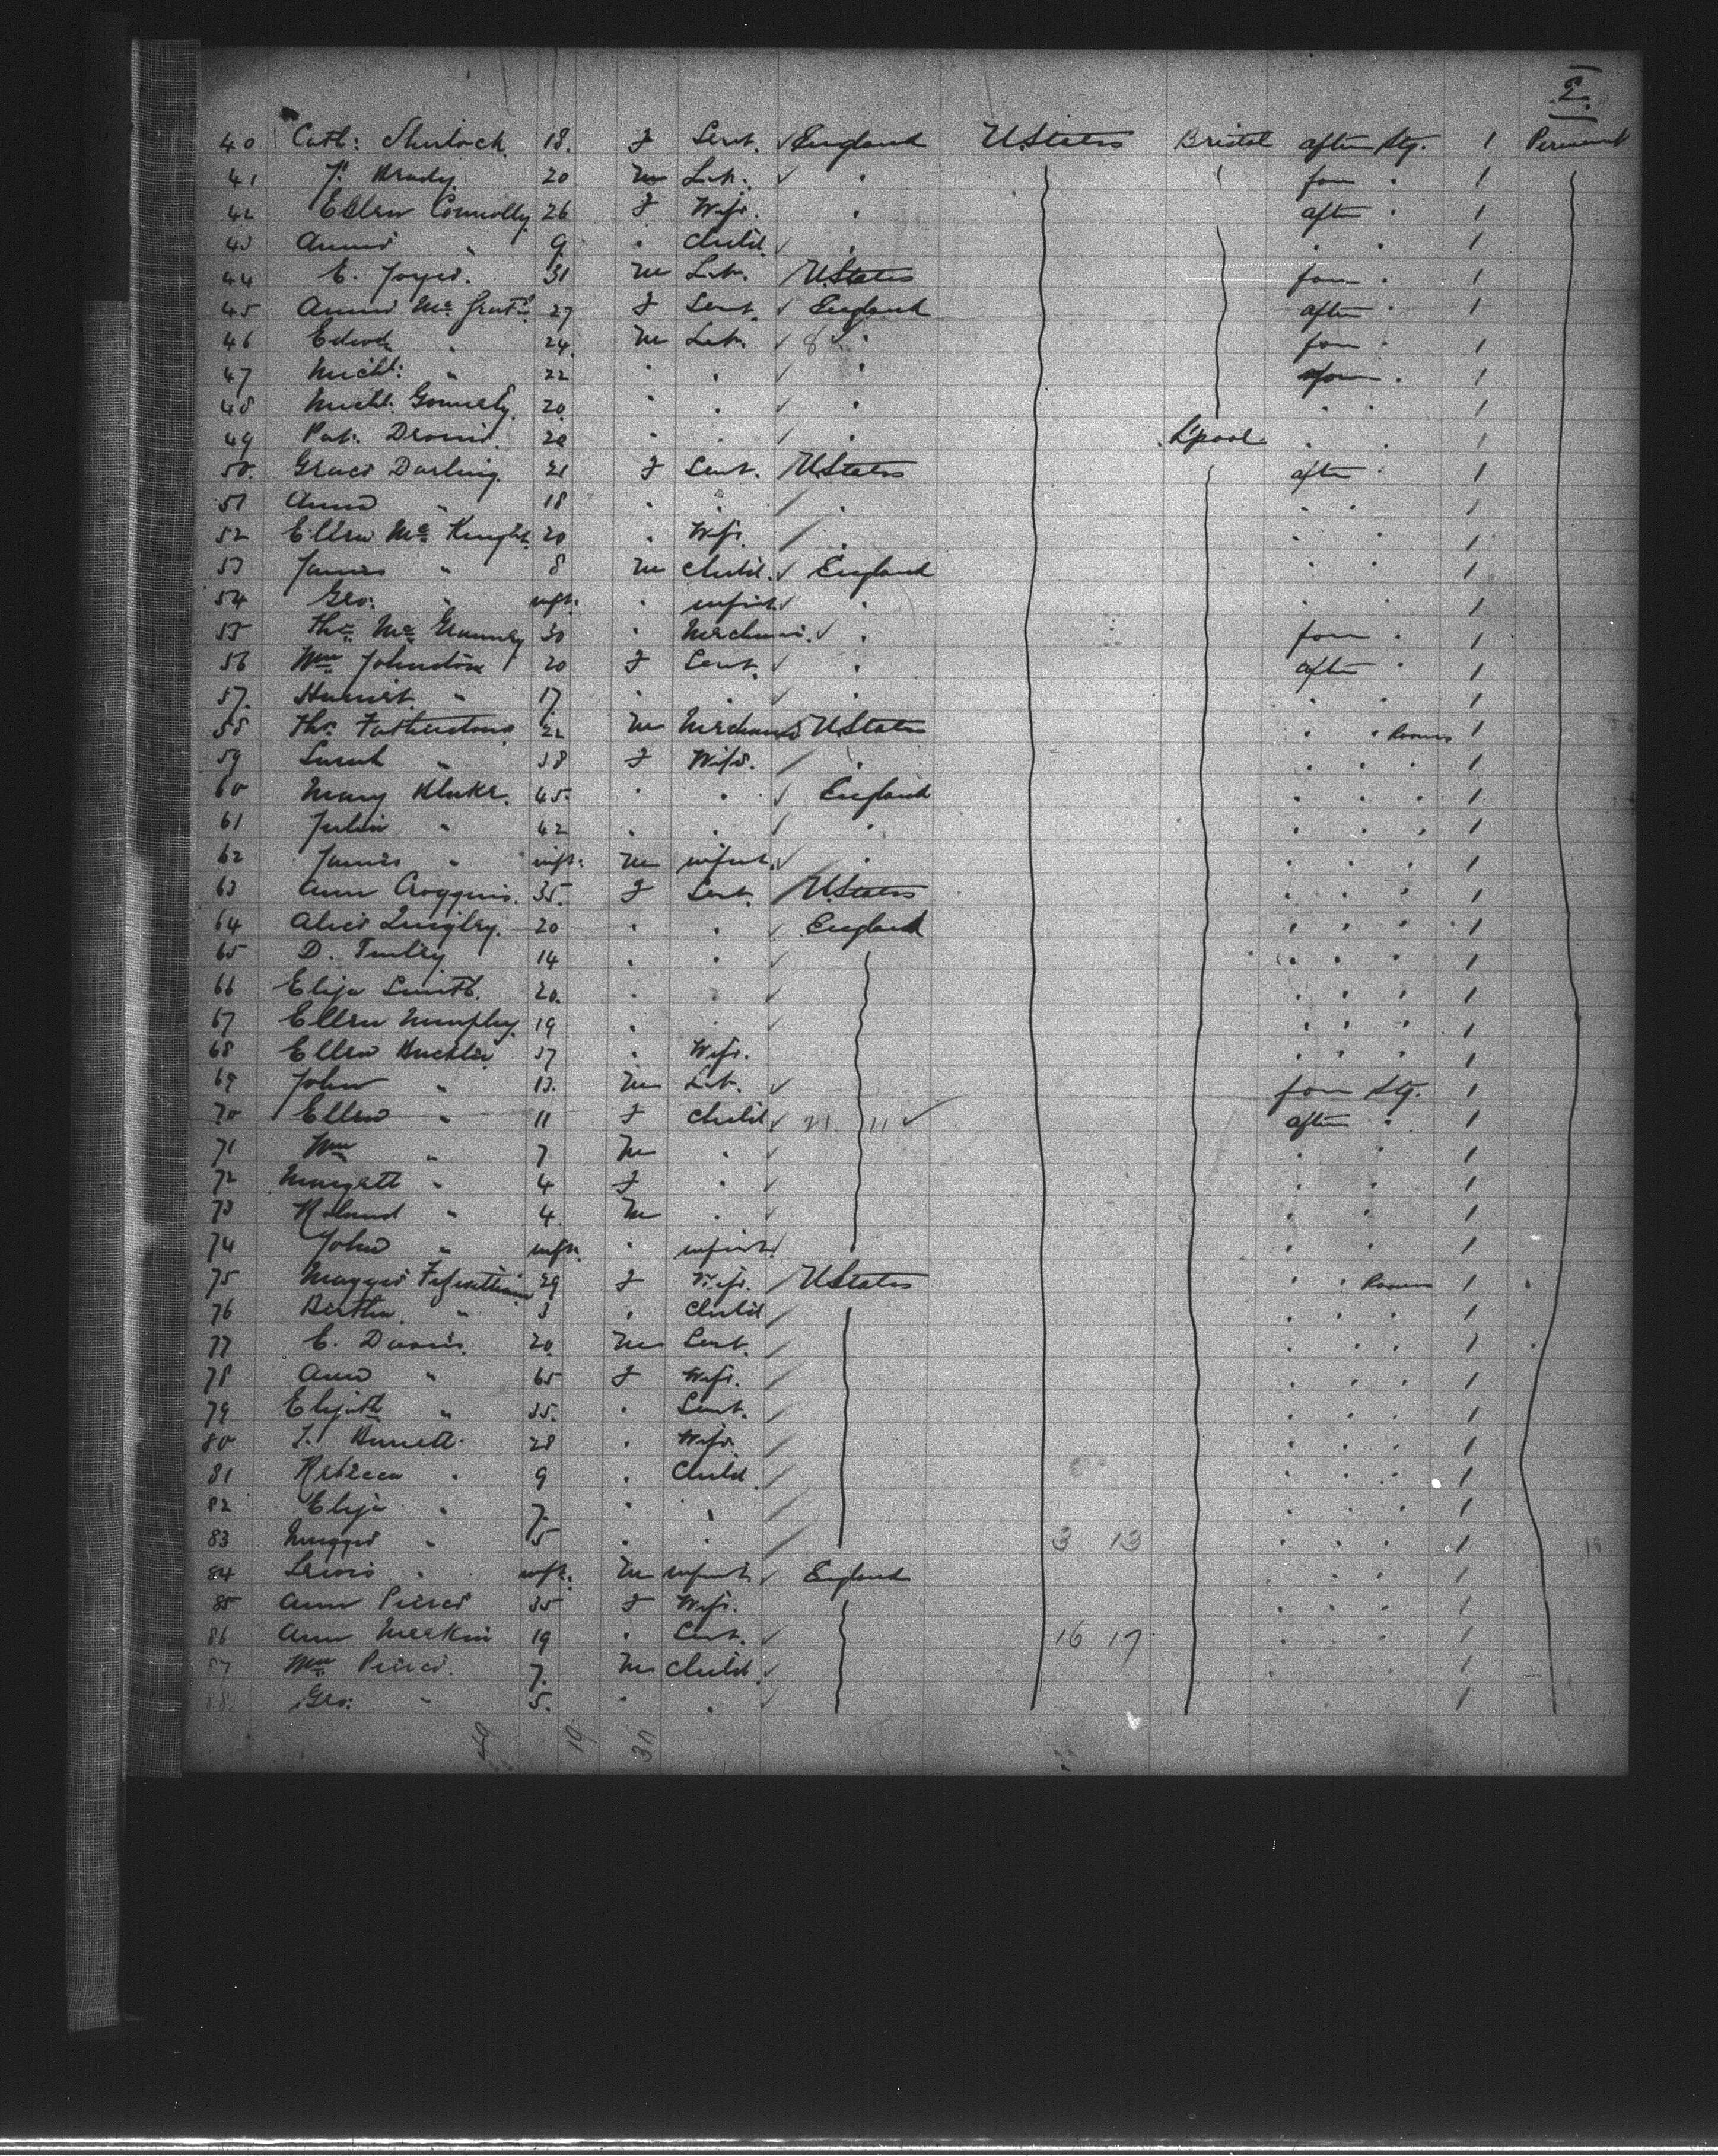 2.
40 Cath: Sherlock 18. F Servt. England U States Bristol after Stg. 1 Perment
41 P. Brady. 20 M Lab. " fore " 1
42 Ellen Connolly 26 F Wife. " after " 1
43 Annie " 9 " Child " " " 1
44 E. Joyce. 31 M Lab. U States fore " 1
45 Annie Mc Grath 27 F Servt. England after " 1
46 Edwd " 24 M Lab. 8 " fore " 1
47 Michl: " 22 " " " fore " 1
48 Michl. 20 " " " " " 1
49 Pat. 20 " " " L'pool " " 1
50. Grace Darling. 21 F Servt. U States after " 1
51 Anna " 18 " " " " " 1
52 Ellen Mc Knight 20 " Wife " " " 1
53 James " 8 M Child. England " " 1
54 Geo: " inft. " infant " " " 1
55 Thos. 30 " Merchant " fore " 1
56 Wm Johnston 20 F Servt. " after " 1
57. Harriet. " 17. " " " " " 1
58 Thos. Fatherstone 22 M Merchant U States " " Rooms 1
59 Sarah " 38 F Wife. " " " " 1
60 Mary Blake. 45. " " England " " " 1
61 Julia " 42 " " " " " " 1
62 James " inft. M infant " " " " 1
63 Ann Croggins. 35. F Servt. U States " " " 1
64 Alice Quigley. 20 " " England " " " 1
65 D. 14 " " " " " 1
66 Eliza Smith. 20. " " " " " 1
67 Ellen Murphy. 19 " " " " " 1
68 Ellen 37 " Wife. " " " 1
69 John " 13. M Lab. fore Stg. 1
70 Ellen " 11 F Child 21 11 after " 1
71 Wm " 7 M " " " 1
72 Margatt " 4 F " " " 1
73 " 4 M " " " 1
74 John " inft. " infant " " 1
75 Maggie 29 F Wife. U States " " Rooms 1
76 Bertha " 3 " Child " " " 1
77 E. Davis. 20 M Servt. " " " 1
78 Ann " 65 F Wife. " " " 1
79 Elizth " 35. " Servt. " " " 1
80 28 " Wife " " " 1
81 Rebecca " 9 " Child " " " 1
82 Eliza " 7. " " " " " 1
83 Maggie " 5 " " 3 13 " " " 1 18
84 Lewis " inft. M infant England " " " 1
85 Ann Pierce 35 F Wife. " " " 1
86 Ann Meakin 19 " Servt. 16 17 " " " 1
87 Wm Pierce. 7. M Child " " " 1
88. Geo: " 5. " " " " " 1
49 19 30